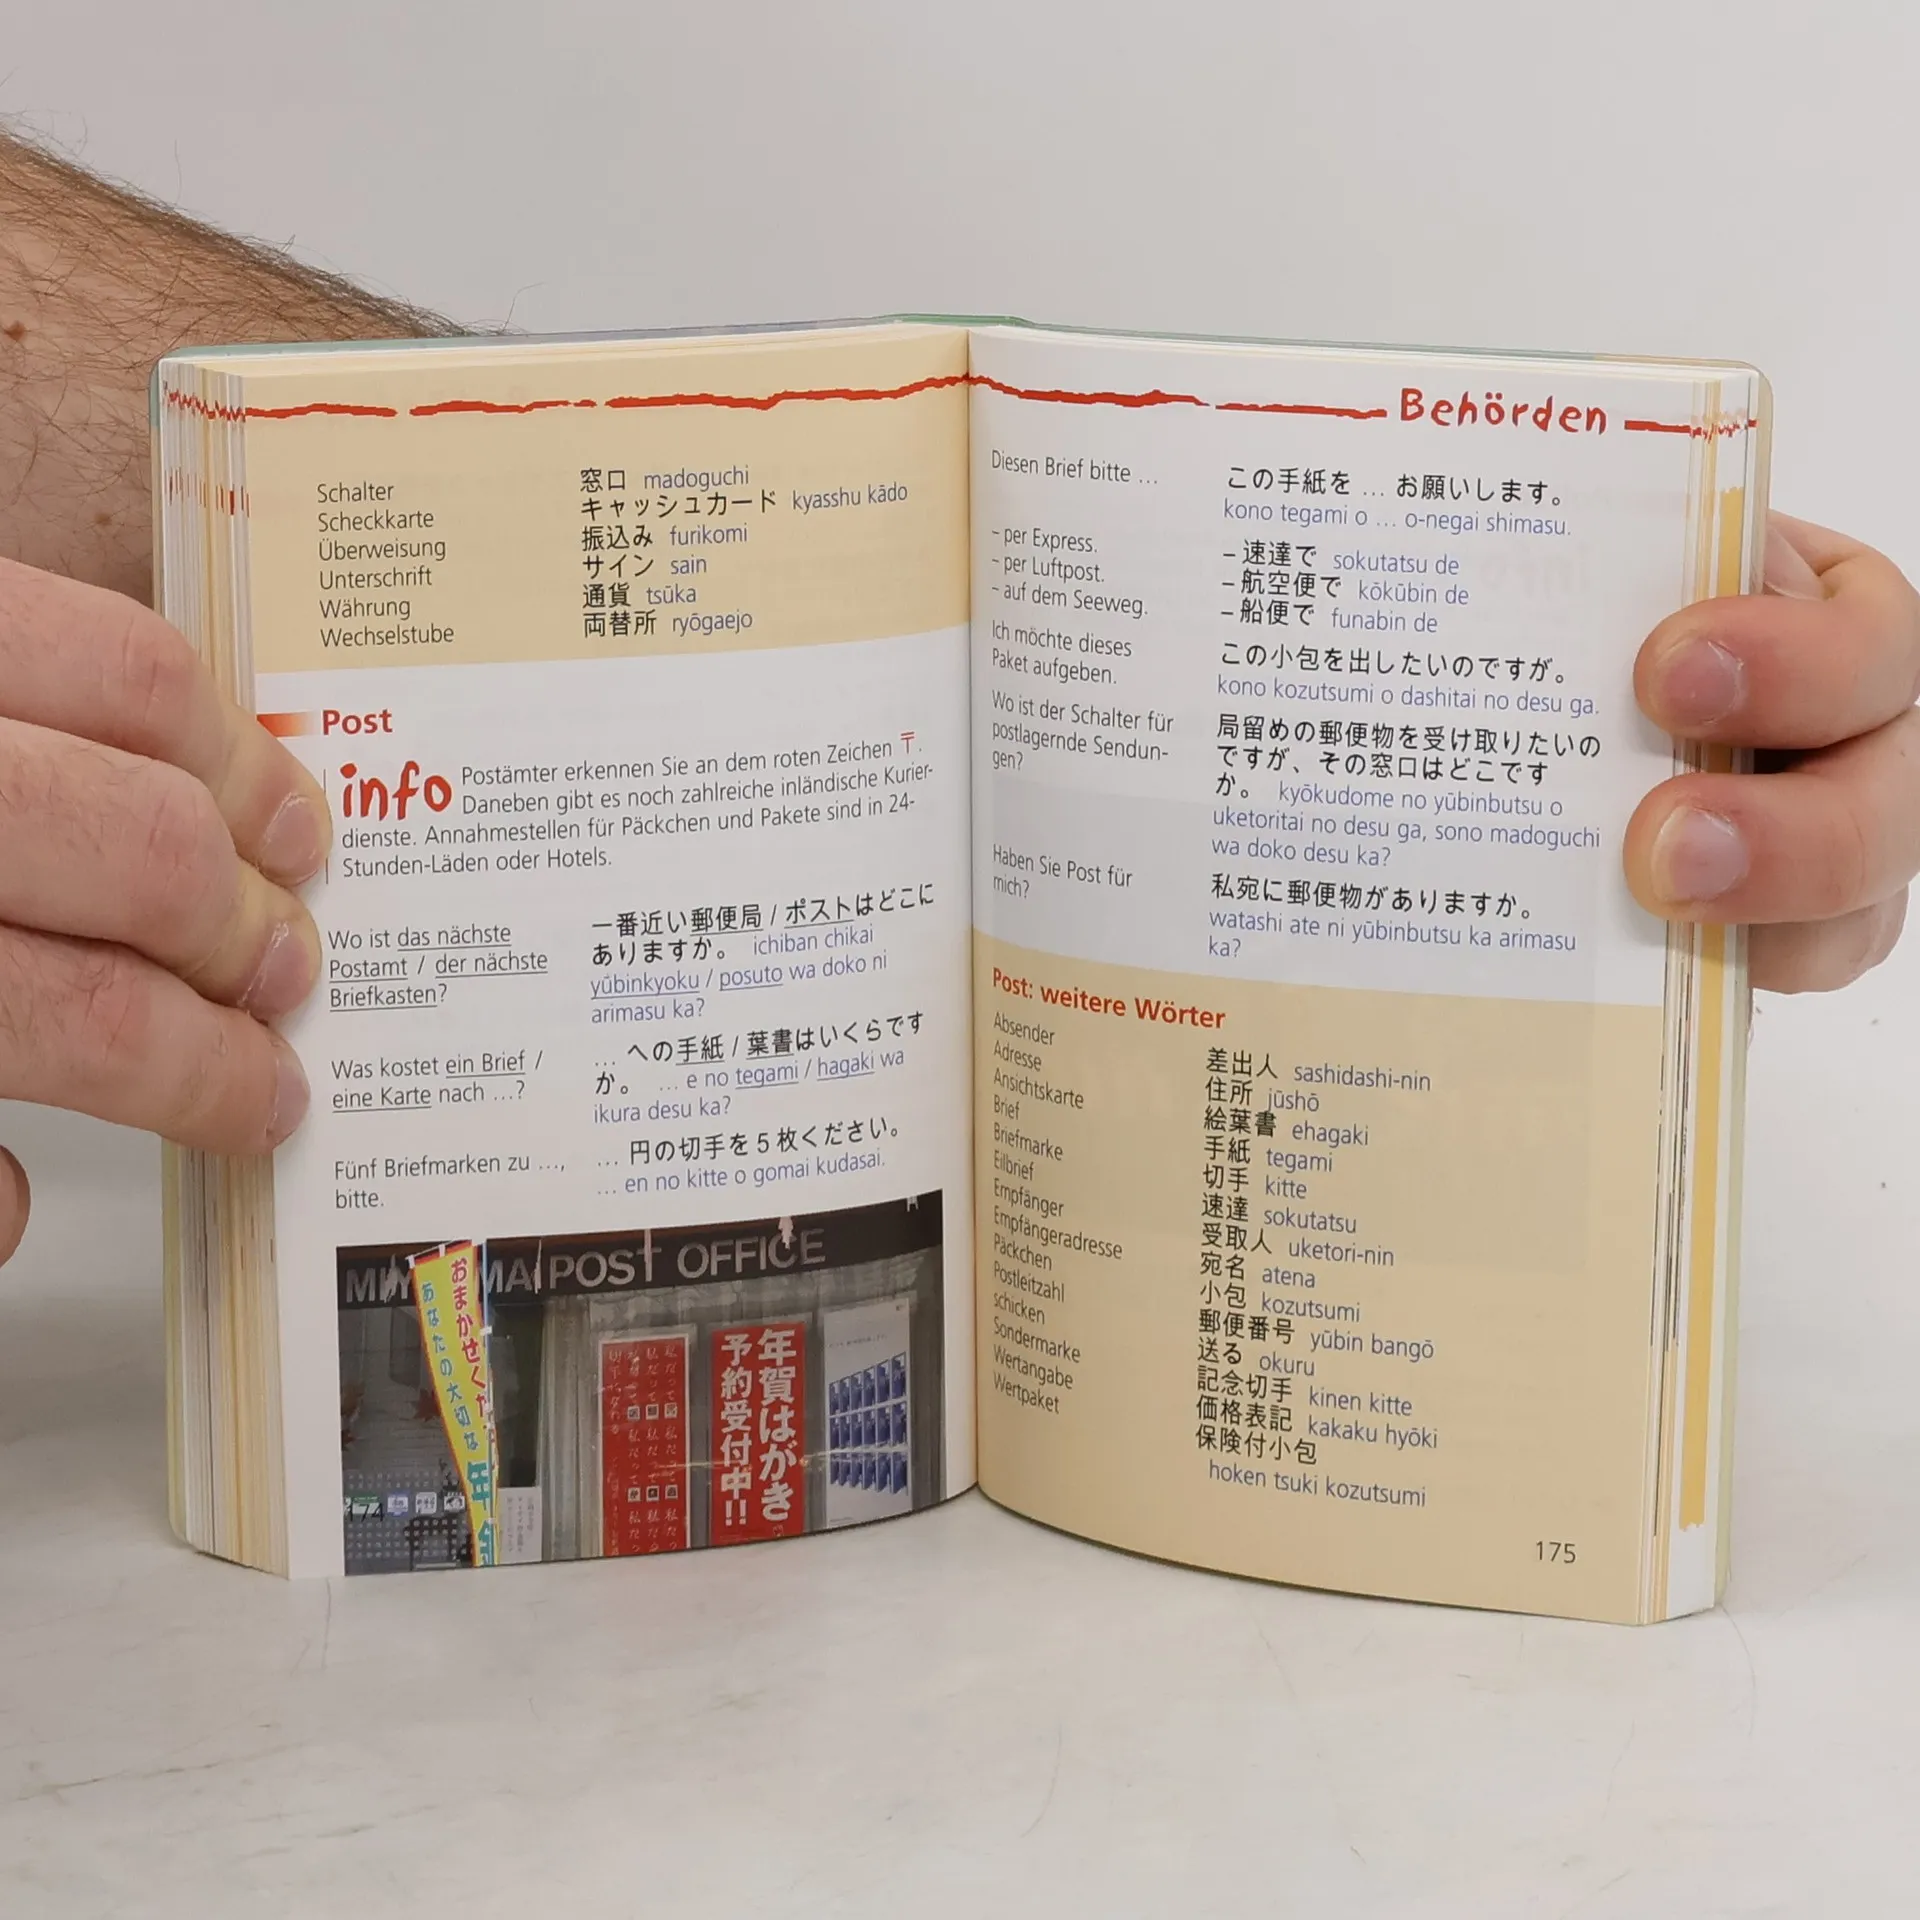 Schalter 窓口 madoguchi
Scheckkarte キャッシュカード kyasshu kādo
Überweisung 振込み furikomi
Unterschrift サイン sain
Währung 通貨 tsūka
Wechselstube 両替所 ryōgaejo
Post
info Postämter erkennen Sie an dem roten Zeichen 〒.
Daneben gibt es noch zahlreiche inländische Kurier-
dienste. Annahmestellen für Päckchen und Pakete sind in 24-
Stunden-Läden oder Hotels.
Wo ist das nächste
Postamt / der nächste
Briefkasten?
一番近い郵便局 / ポストはどこに
ありますか。 ichiban chikai
yūbinkyoku / posuto wa doko ni
arimasu ka?
Was kostet ein Brief /
eine Karte nach ...?
... への手紙 / 葉書はいくらです
か。 ... e no tegami / hagaki wa
ikura desu ka?
Fünf Briefmarken zu ...,
bitte.
... 円の切手を5枚ください。
... en no kitte o gomai kudasai.
POST OFFICE
おまかせくだ
あなたの大切な
年
年賀はがき
予約受付中!!
174
Behörden
Diesen Brief bitte ...
この手紙を ... お願いします。
kono tegami o ... o-negai shimasu.
– per Express.
– per Luftpost.
– auf dem Seeweg.
– 速達で sokutatsu de
– 航空便で kōkūbin de
– 船便で funabin de
Ich möchte dieses
Paket aufgeben.
この小包を出したいのですが。
kono kozutsumi o dashitai no desu ga.
Wo ist der Schalter für
postlagernde Sendun-
gen?
局留めの郵便物を受け取りたいの
ですが、その窓口はどこです
か。 kyōkudome no yūbinbutsu o
uketoritai no desu ga, sono madoguchi
wa doko desu ka?
Haben Sie Post für
mich?
私宛に郵便物がありますか。
watashi ate ni yūbinbutsu ka arimasu
ka?
Post: weitere Wörter
Absender 差出人 sashidashi-nin
Adresse 住所 jūshō
Ansichtskarte 絵葉書 ehagaki
Brief 手紙 tegami
Briefmarke 切手 kitte
Eilbrief 速達 sokutatsu
Empfänger 受取人 uketori-nin
Empfängeradresse 宛名 atena
Päckchen 小包 kozutsumi
Postleitzahl 郵便番号 yūbin bangō
schicken 送る okuru
Sondermarke 記念切手 kinen kitte
Wertangabe 価格表記 kakaku hyōki
Wertpaket 保険付小包
hoken tsuki kozutsumi
175